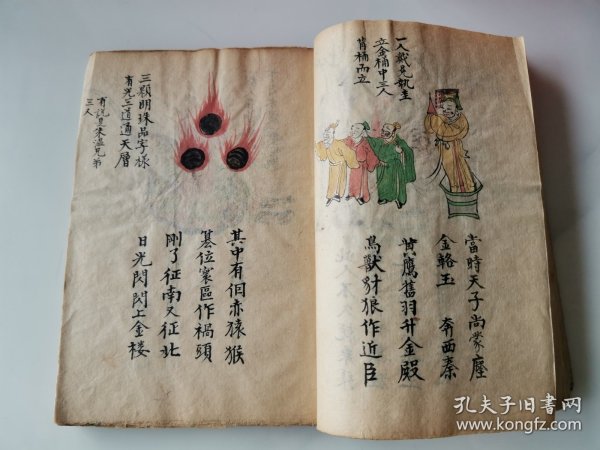 一人戴冕執圭
立金桶中三人
背桶而立
當時天子尚蒙塵
金輅玉　奔西秦
黃鷹舊羽升金殿
鳥獸豺狼作近臣
三顆明珠品字樣
有光三道通天層
有說是朱溫兄弟
三人
其中有個赤猴
位寰區作禍頭
剛了征南又征北
日光閃閃上金楼
孔夫子旧书网
www.kongfz.com